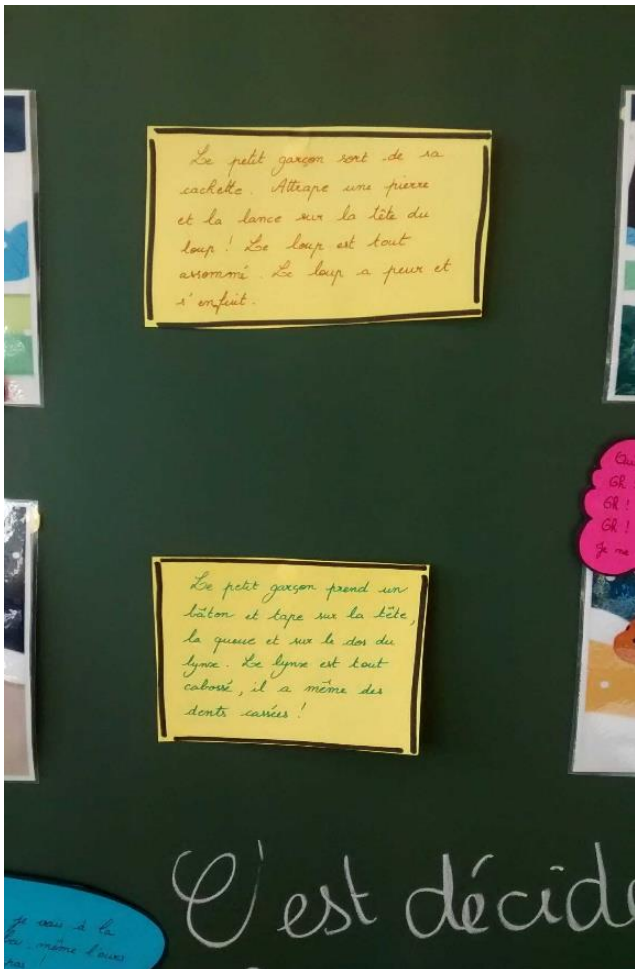 Le petit garçon sort de sa
cachette. Attrape une pierre
et la lance sur la tête du
loup ! Le loup est tout
assommé. Le loup a peur et
s'enfuit.
Qu
Gh !
Gh !
Gh !
Je me
Le petit garçon prend un
bâton et tape sur la tête,
la queue et sur le dos du
lynx. Le lynx est tout
cabossé, il a même des
dents cassées !
C'est décidé
je vais à la
même l'ours